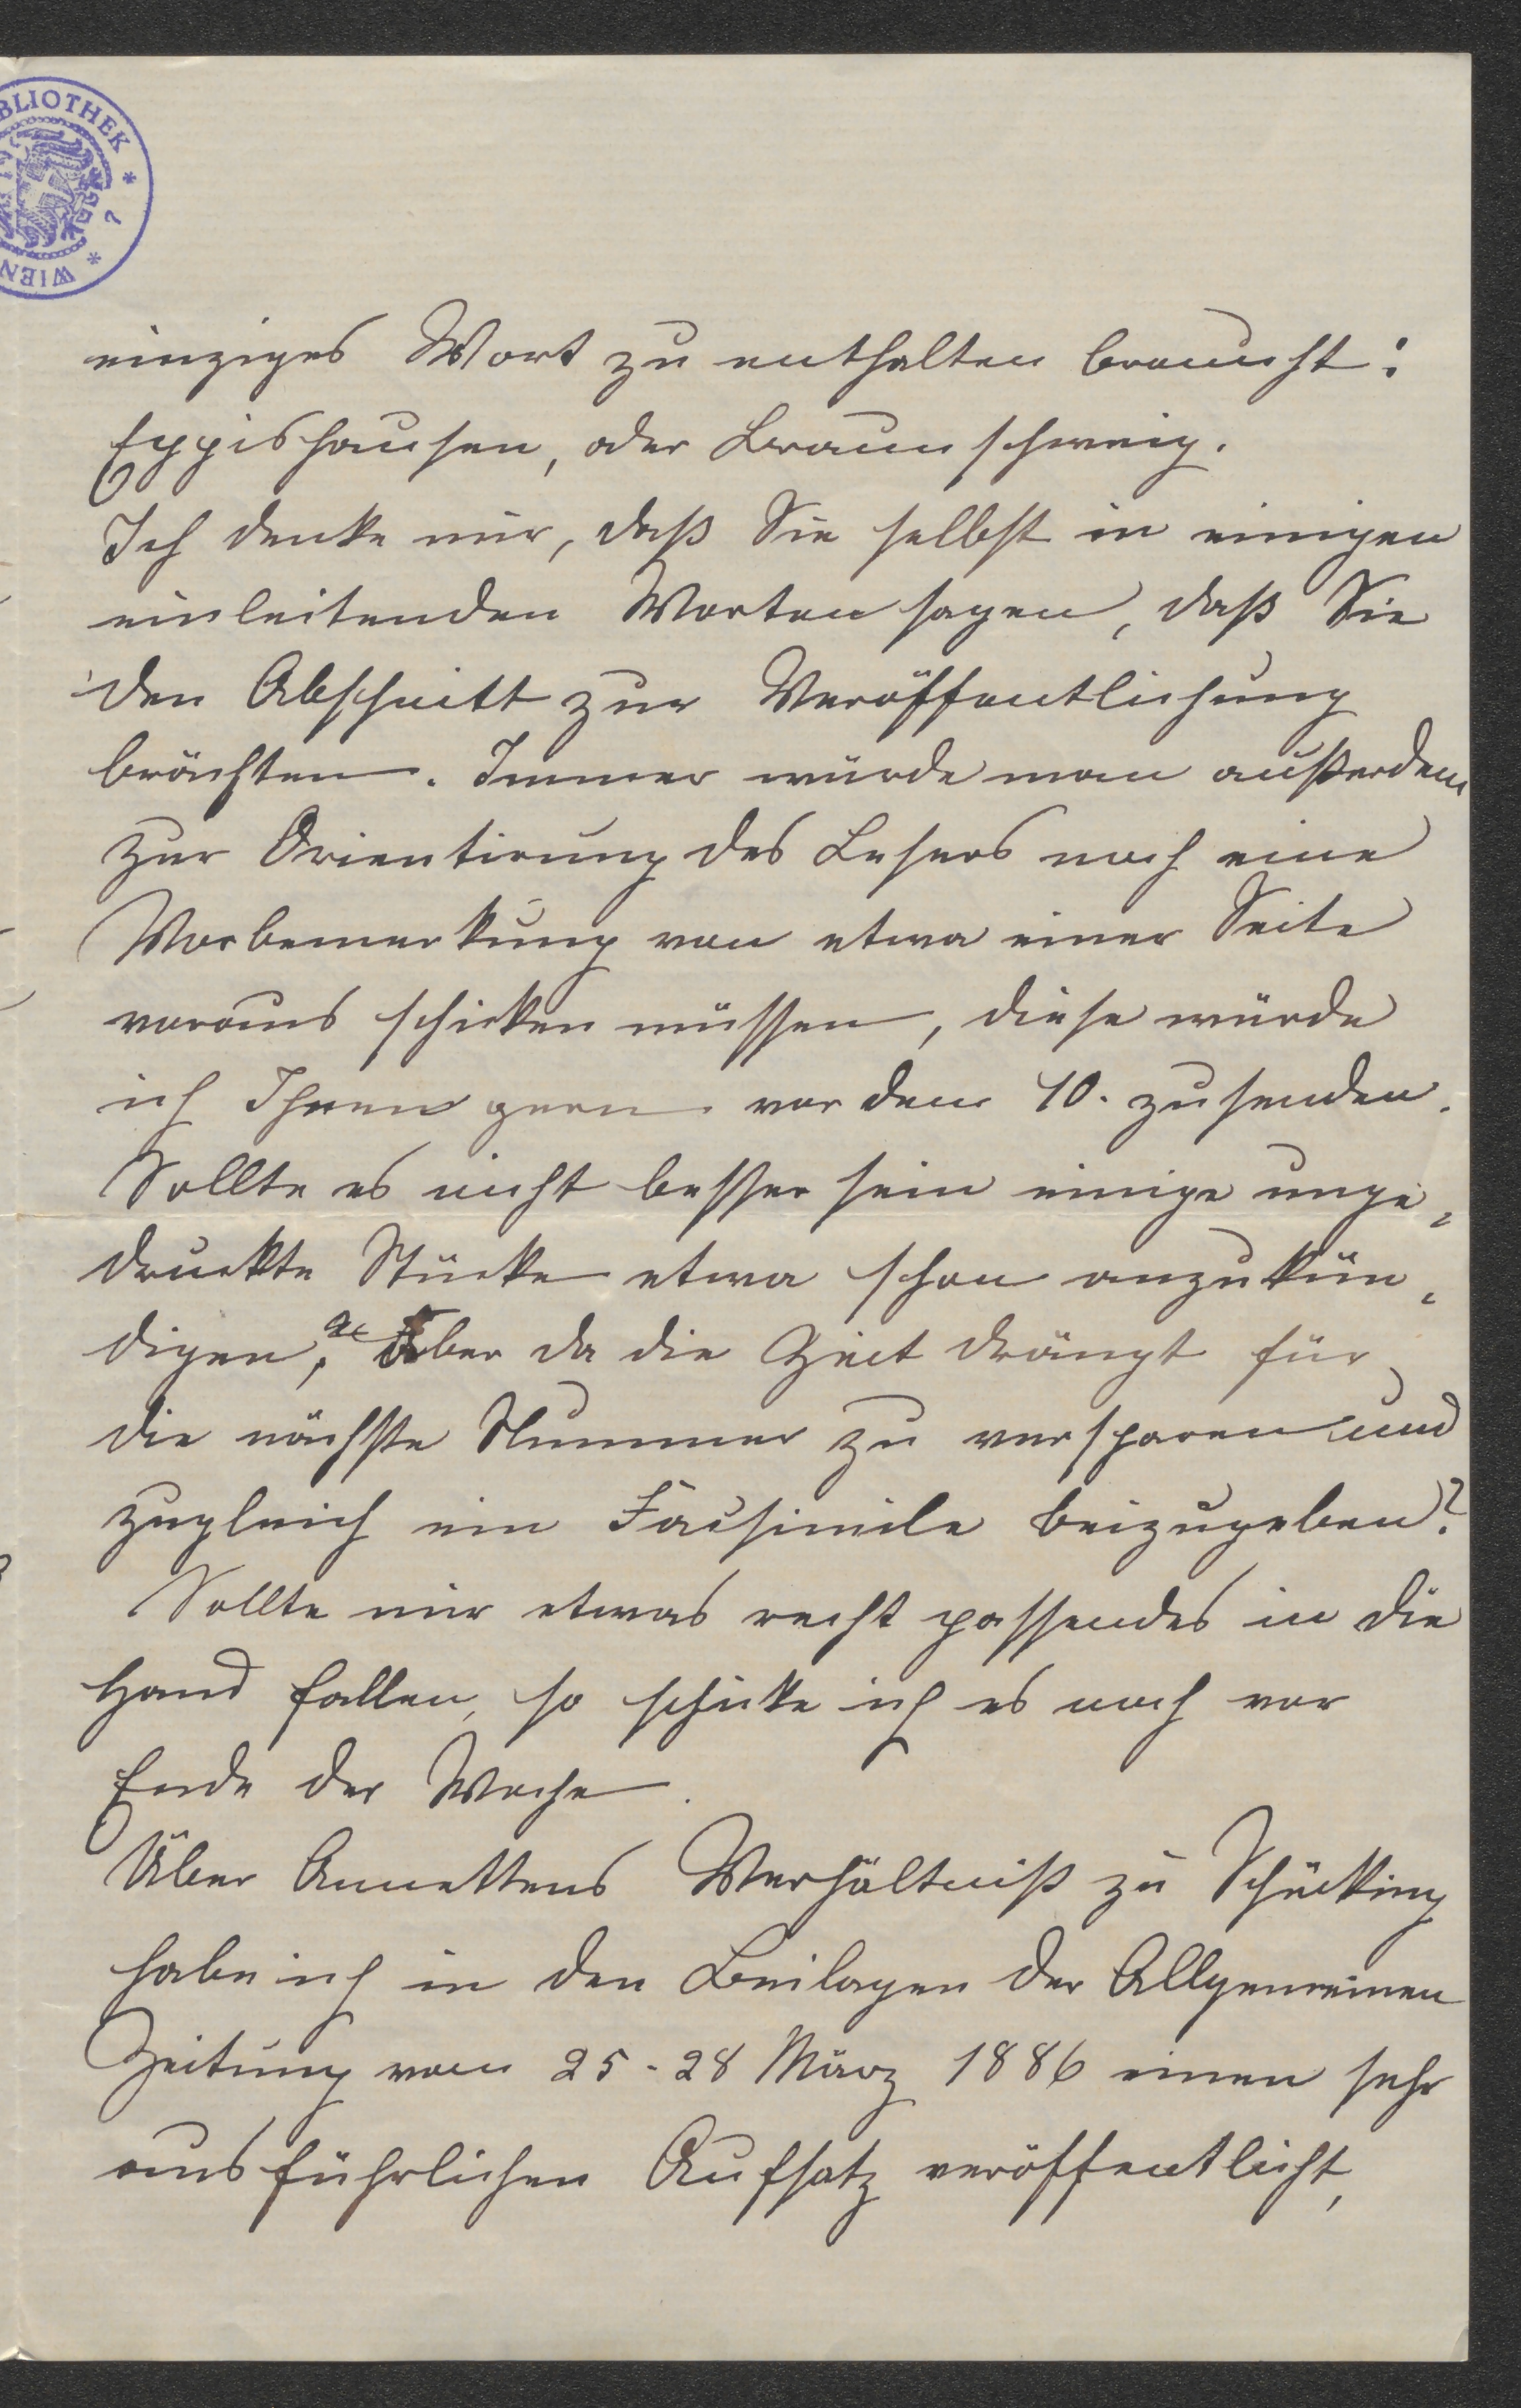 BLIOTHEK * 7 * WIEN
einziges Wort zu enthalten braucht:
Eppishausen, oder Braunschweig.
Ich denke mir, daß Sie selbst in einigen
einleitenden Worten sagen, daß Sie
den Abschnitt zur Veröffentlichung
brächten. Immer würde man außerdem
zur Orientirung des Lesers noch eine
Vorbemerkung von etwa einer Seite
voraus schicken müssen, diese würde
ich Ihnen gern vor dem 10. zusenden.
Sollte es nicht besser sein einige unge-
druckte Stücke etwa schon anzukün-
digen, aber da die Zeit drängt für
die nächste Nummer zu versparen und
zugleich ein Facsimile beizugeben?
Sollte mir etwas recht passendes in die
Hand fallen, so schicke ich es noch vor
Ende der Woche.
Über Annettens Verhältniß zu Schücking
habe ich in den Beilagen der Allgemeinen
Zeitung vom 25-28 März 1886 einen sehr
ausführlichen Aufsatz veröffentlicht,